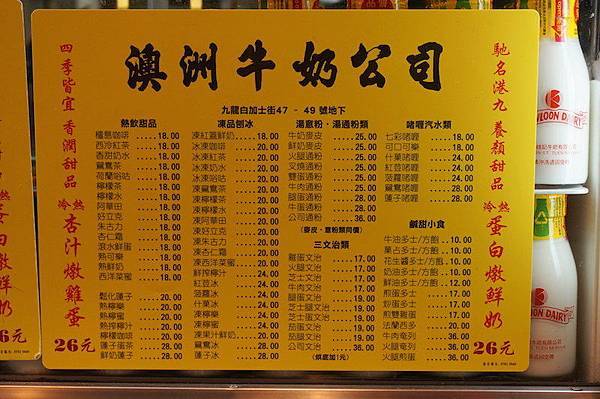 澳洲牛奶公司
九龍白加士街47 - 49 號地下
四季皆宜 香潤甜品
冷熱 杏汁燉雞蛋
26元
馳名港九 養顏甜品
冷熱 蛋白燉鮮奶
26元
熱飲甜品
檀島咖啡 ......18.00
西冷紅茶 ......18.00
香甜奶水 ......18.00
鴛鴦茶 ......18.00
阿華田 ......18.00
好立克 ......18.00
朱古力 ......18.00
杏仁霜 ......18.00
滾水鮮蛋 ......18.00
熱可樂 ......18.00
熱鮮奶 ......18.00
西洋菜蜜 ......18.00
鬆化蓮子 ......20.00
熱檸樂 ......20.00
熱檸蜜 ......20.00
熱檸汁 ......20.00
蓮子蛋茶 ......28.00
鮮奶蓮子 ......28.00
凍品刨冰
凍紅蘿鮮奶 ......18.00
凍咖啡 ......18.00
凍紅茶 ......18.00
凍奶水 ......18.00
凍鴛鴦茶 ......18.00
凍檸檬茶 ......18.00
凍檸檬水 ......18.00
凍阿華田 ......18.00
凍好立克 ......18.00
凍朱古力 ......18.00
凍杏仁霜 ......18.00
凍西洋菜蜜 ......18.00
鮮搾檸汁 ......24.00
紅豆冰 ......24.00
菠蘿冰 ......24.00
什果冰 ......24.00
凍檸樂 ......20.00
凍檸蜜 ......20.00
凍果汁鮮奶 ......20.00
鴛鴦冰 ......28.00
蓮子冰 ......28.00
湯意粉・湯通粉類
牛奶麥皮 ......25.00
鮮奶麥皮 ......25.00
火腿通粉 ......25.00
叉燒通粉 ......25.00
雙蛋通粉 ......25.00
牛肉通粉 ......28.00
腿蛋通粉 ......28.00
牛蛋通粉 ......28.00
公司通粉 ......36.00
(麥皮・意粉類同價)
三文治類
雞蛋文治 ......17.00
火腿文治 ......17.00
芝士文治 ......17.00
牛肉文治 ......20.00
腿蛋文治 ......20.00
芝士蛋文治 ......20.00
芝士腿文治 ......20.00
茄腿文治 ......20.00
牛蛋文治 ......20.00
公司文治 ......31.00
(烘底加1元)
啫喱汽水類
七彩啫喱 ......18.00
可口可樂 ......18.00
什菓啫喱 ......24.00
紅荳啫喱 ......24.00
菠蘿啫喱 ......24.00
鴛鴦啫喱 ......28.00
蓮子啫喱 ......28.00
鹹甜小食
牛油多士/方飽 ..10.00
菓占多士/方飽 ..10.00
花生醬多士/方飽 ..10.00
奶油多士/方飽 ..10.00
鮮油多士/方飽 ..12.00
煎蛋多士 ......17.00
炒蛋多士 ......17.00
煎雙雞蛋 ......17.00
法蘭西多 ......20.00
牛肉奄列 ......31.00
火腿奄列 ......31.00
火腿煎蛋 ......31.00
KOWLOON DAIRY
LOON DAIRY